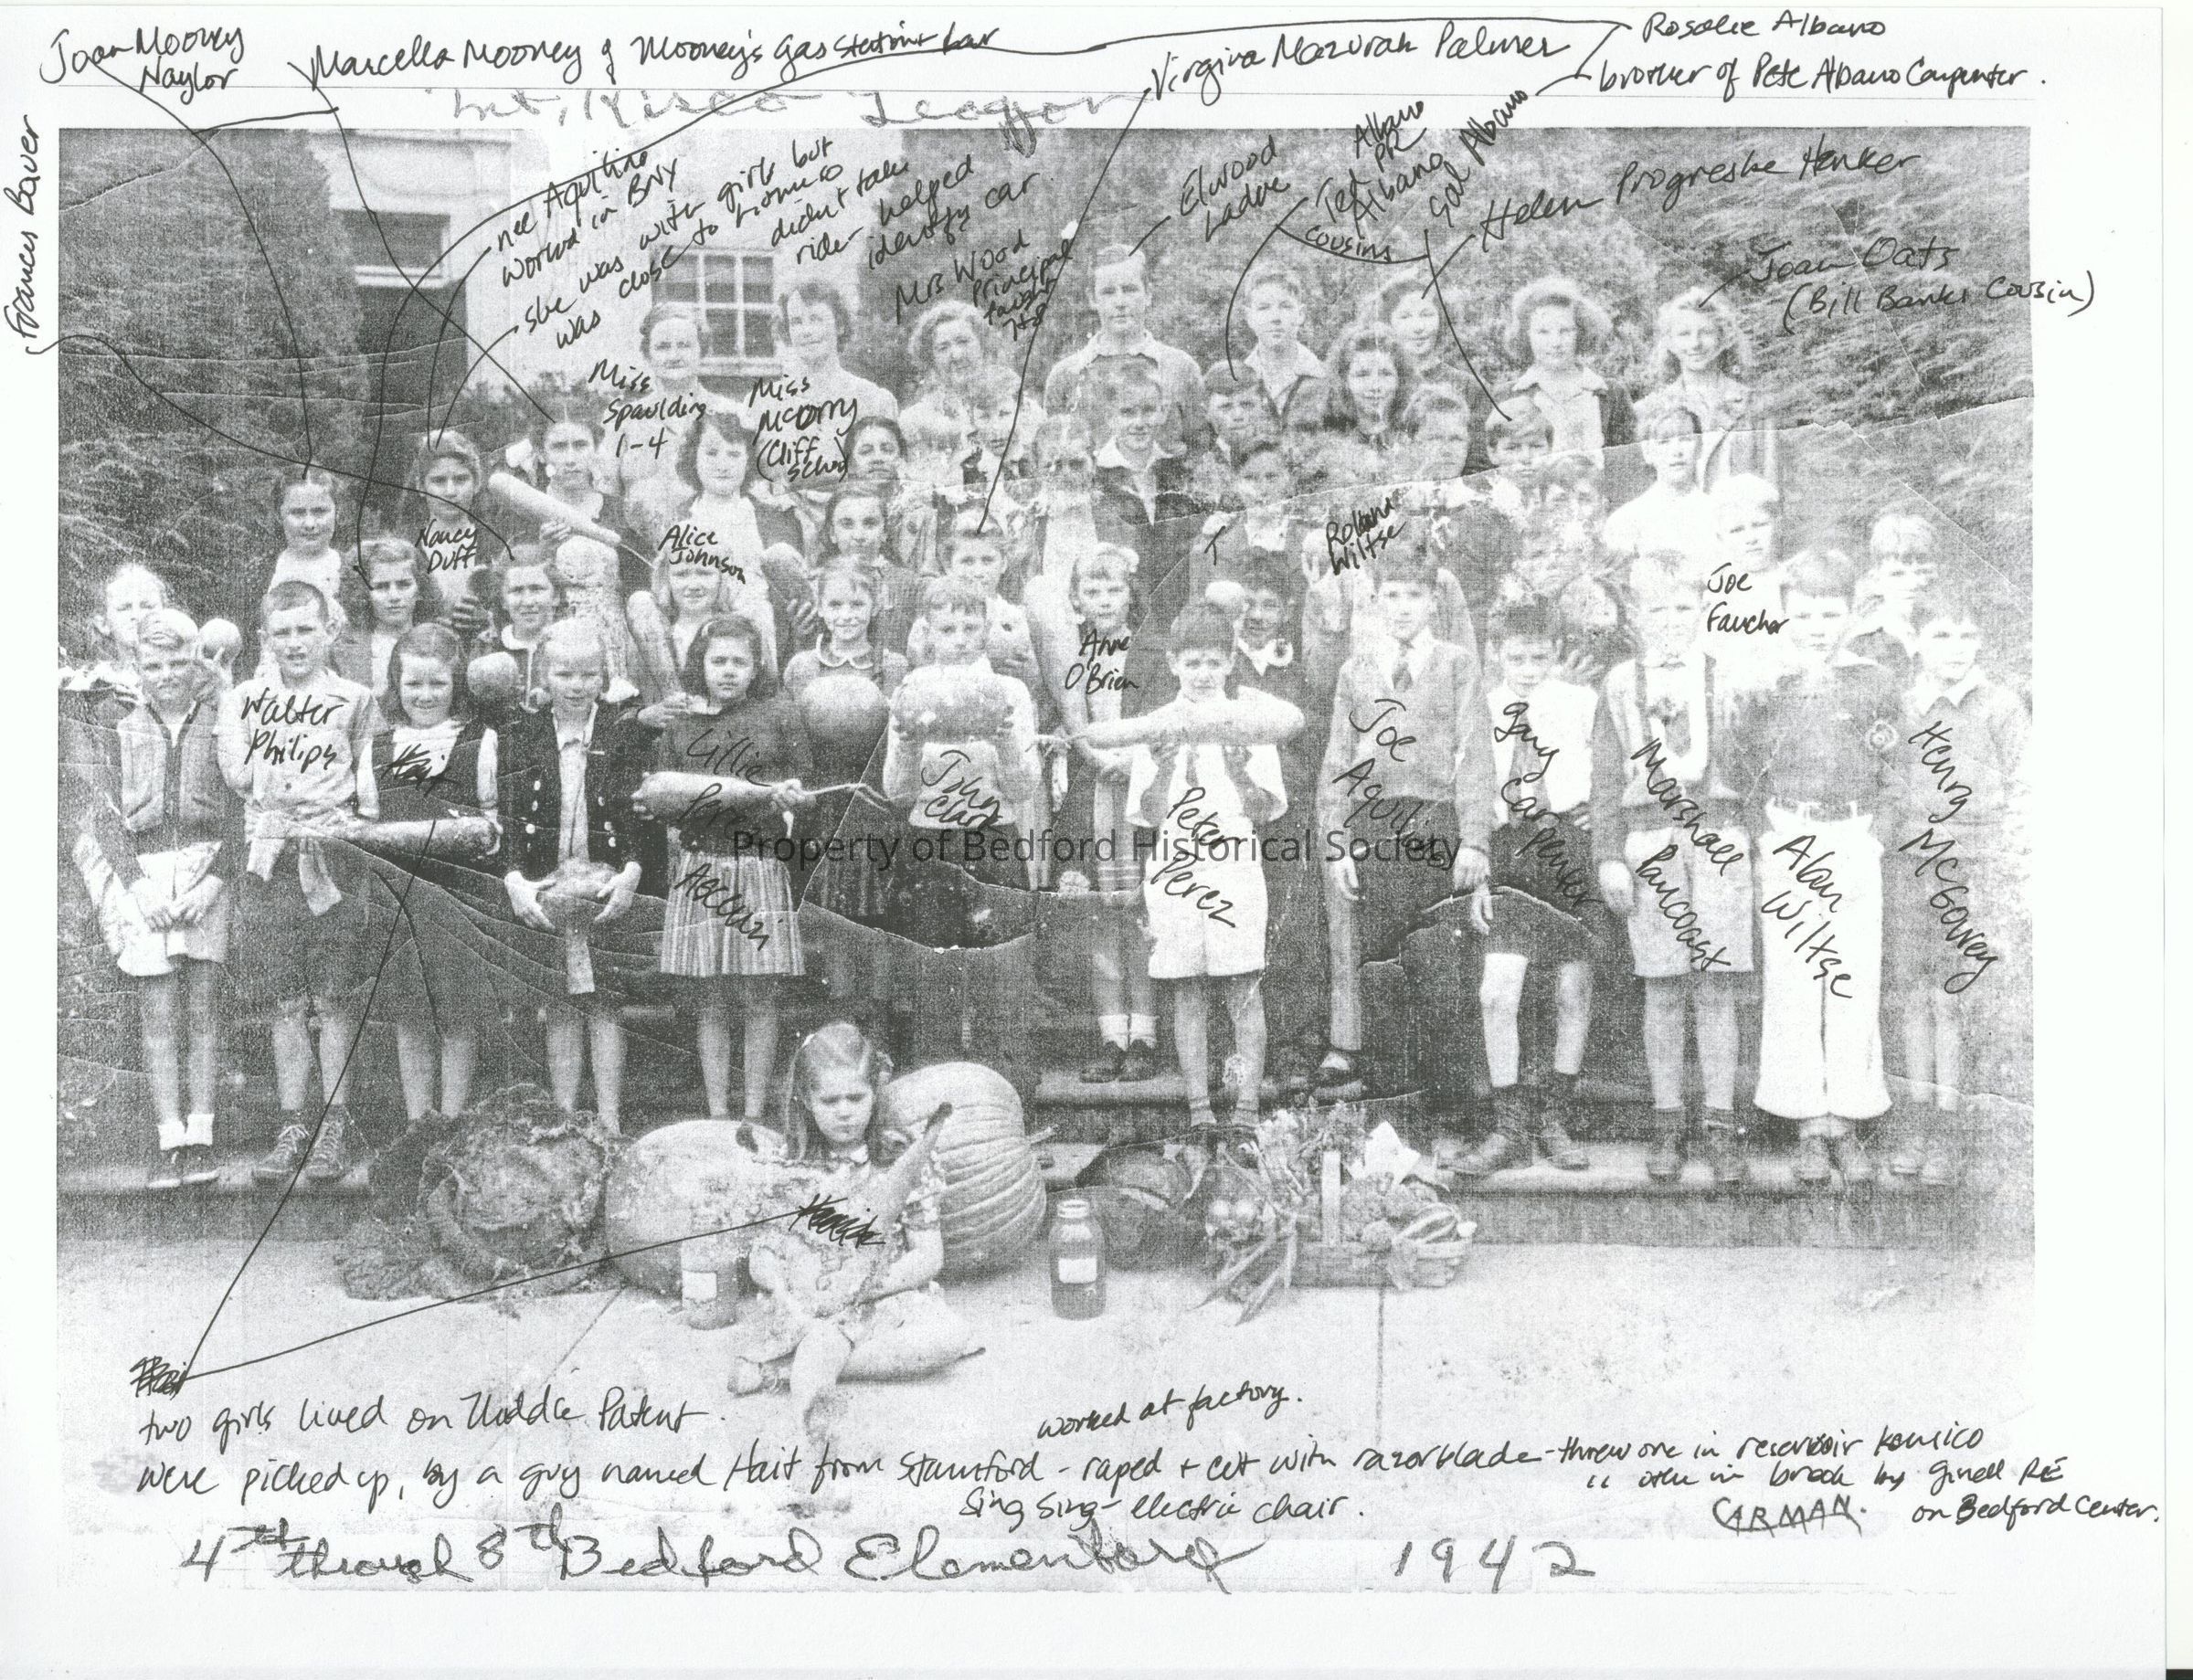 Joan Mooney
Naylor
Marcella Mooney of Mooney's Gas Station & bar
Virginia Mazurak Palmer
Rosalie Albano
brother of Pete Albano Carpenter.
Mt. Kisco
Frances Bauer
nee Aquilino
worked in BNY
she was with girls but
was close to
didn't take
ride - helped
identify car.
Mrs Wood
Principal
taught
Elwood
Ladue
Albano
PR
Ted Albano
cousins
Gal Albano
Helen Progreske Henker
Joan Oats
(Bill Banks Cousin)
Miss
Spaulding
1-4
Miss
(Cliff
School)
Nancy
Duff
Alice
Johnson
Rolland
Wiltse
Joe
Faucher
Anne
O'Brien
Walter
Philips
Lillie
John
Clark
Peter
Perez
Joe
Aquilino
Gary
Carpenter
Marshall
Pancoast
Alan
Wiltse
Henry
McGovrey
Property of Bedford Historical Society
two girls lived on Middle Patent.
worked at factory.
were picked up, by a guy named Hait from Stamford - raped + cut with razorblade - threw one in reservoir Kensico
" other in brook by
on Bedford Center.
Sing Sing - electric chair.
CARMAN.
4th through 8th Bedford Elementary 1942